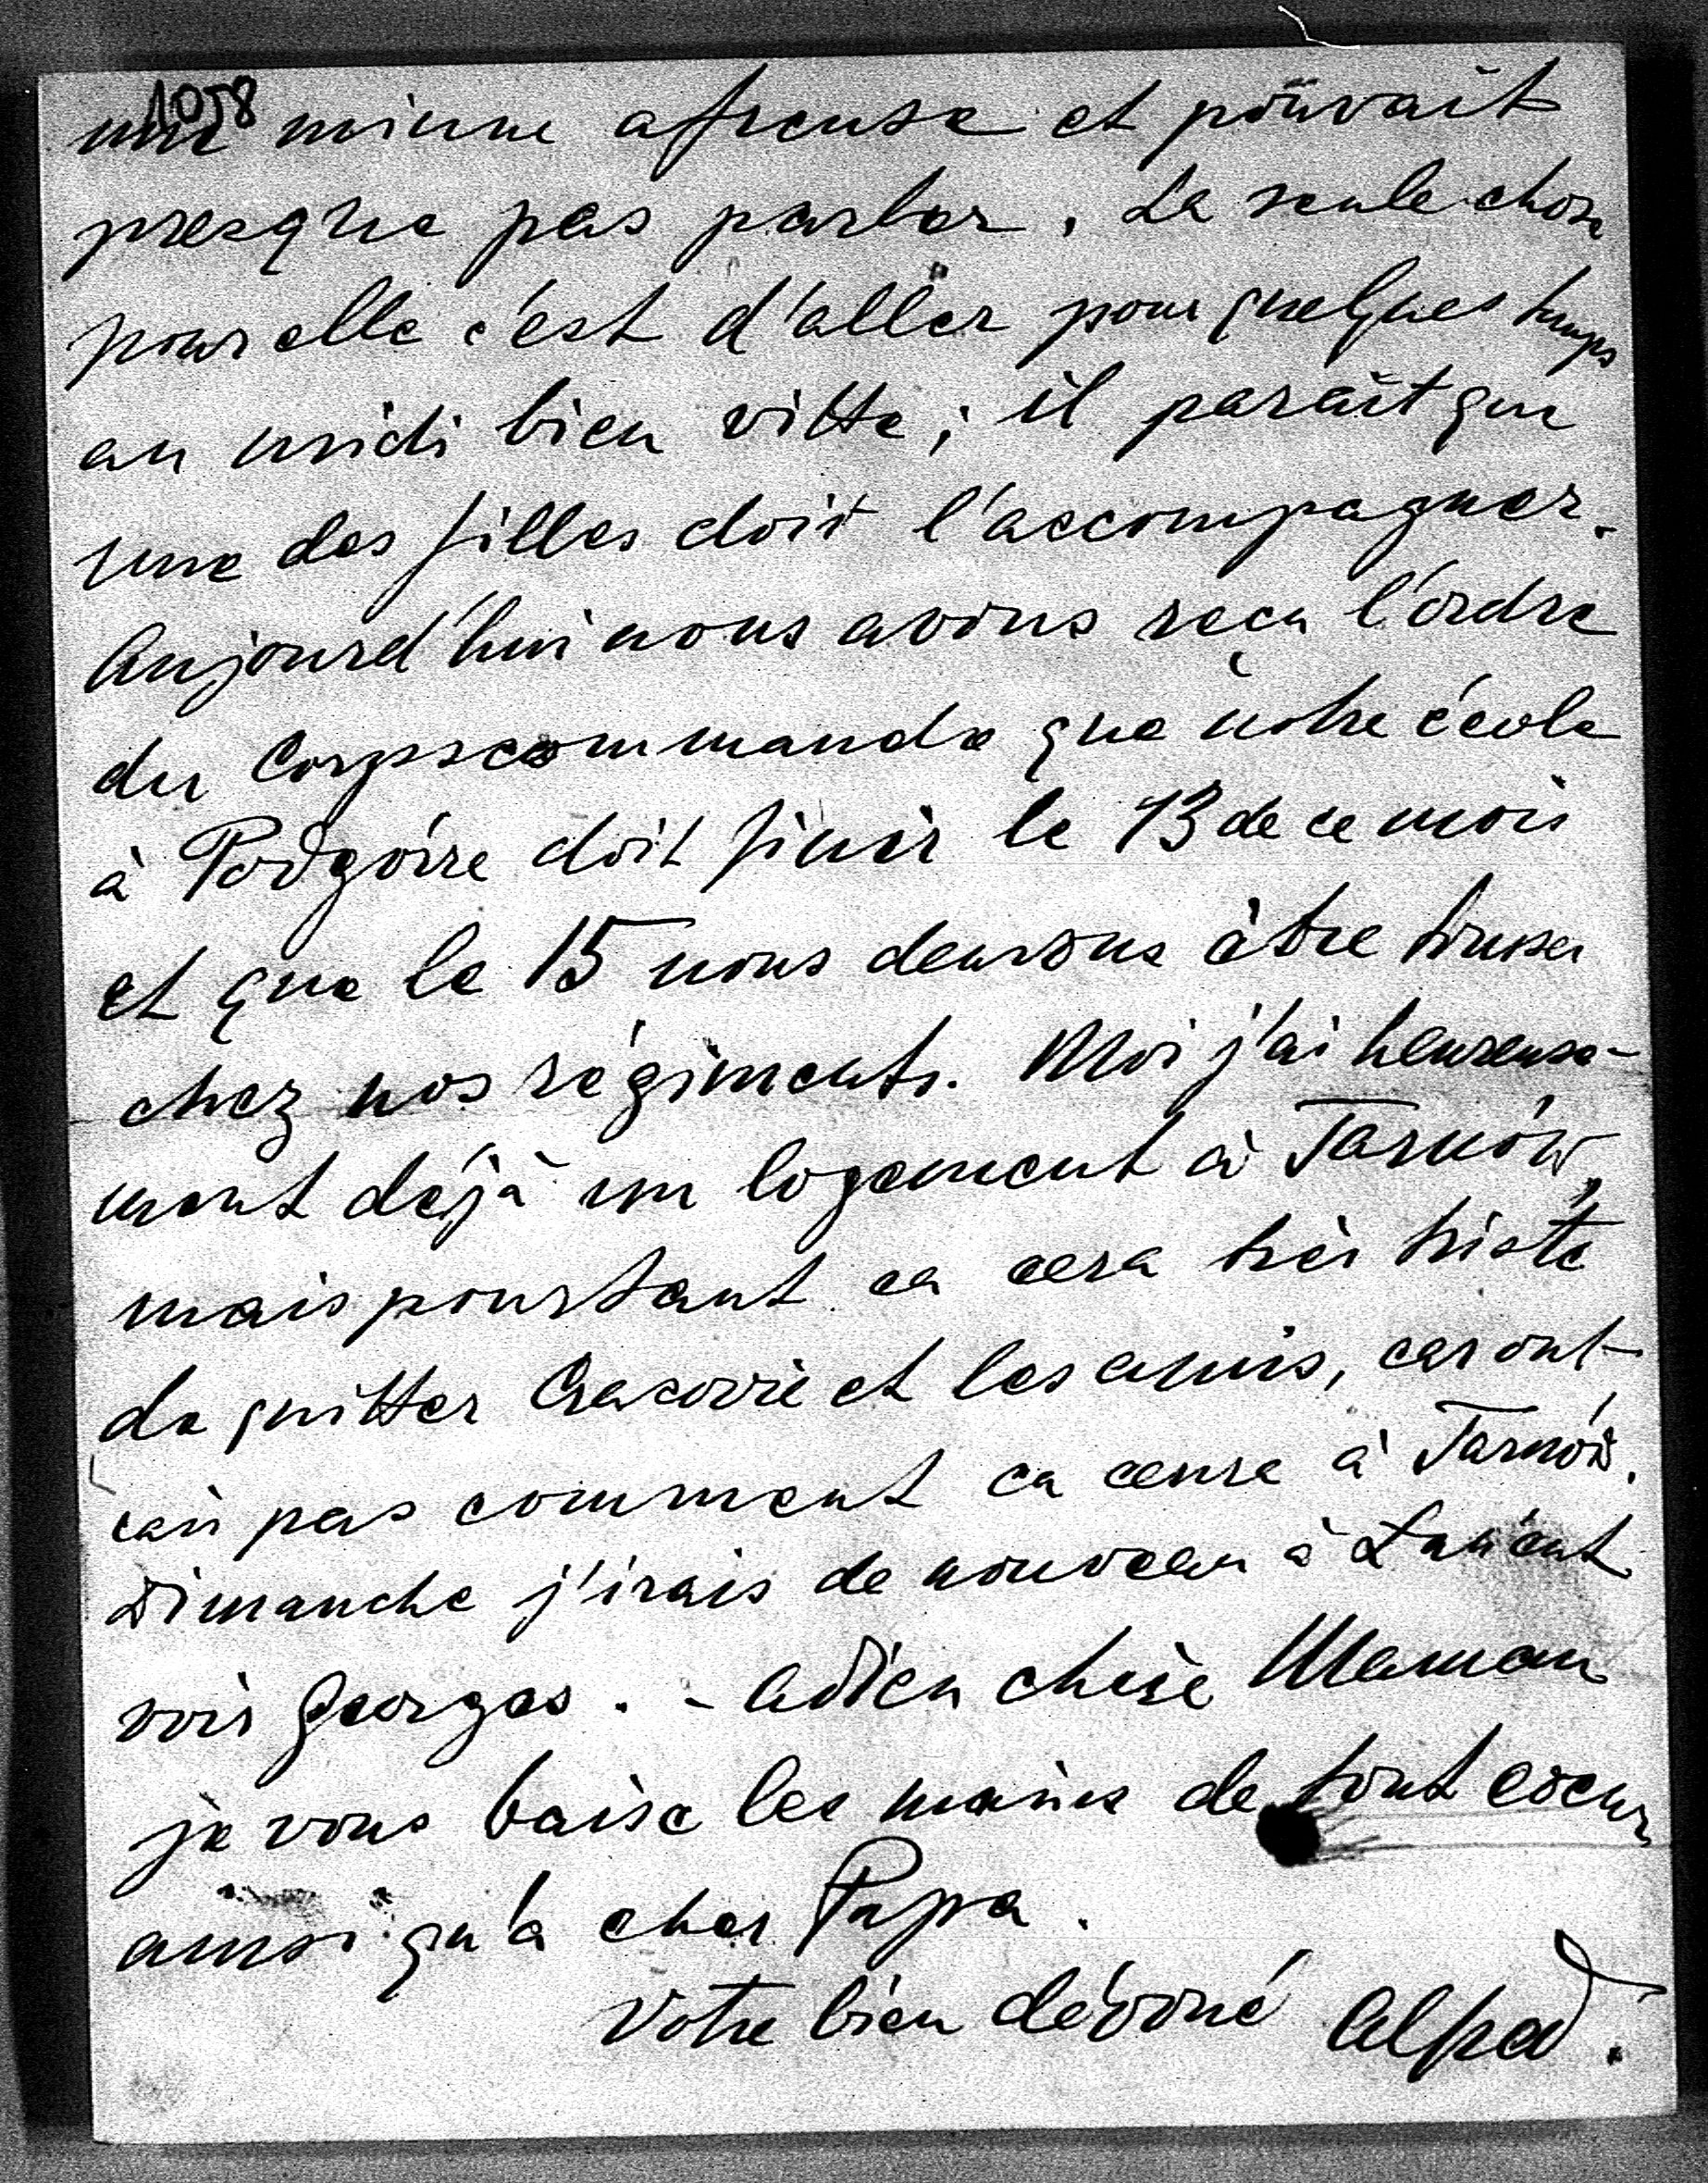 1058
une minne afreuse et pouvait
presque pas parler. La seule chose
pour elle c'est d'aller pour quelques temps
au midi bien vitte; il paraît que
une des filles doit l'accompagner.
Aujourd'hui nous avons reçu l'ordre
du Corpscommando que notre école
à Podgórze doit finir le 13 de ce mois
et que le 15 nous devrons être
chez nos régiments. Moi j'ai heureuse-
ment déjà un logement à Tarnów,
mais pourtant ca cera très triste
de quitter Cracovie et les amis, car ont
cais pas comment ca cera à Tarnów.
Dimanche j'irais de nouveau à Łańcut
voir Georges. - Adieu chère Maman
je vous baise les mains de tout coeur
ainsi qu'à cher Papa.
Votre bien dévoué Alfred.